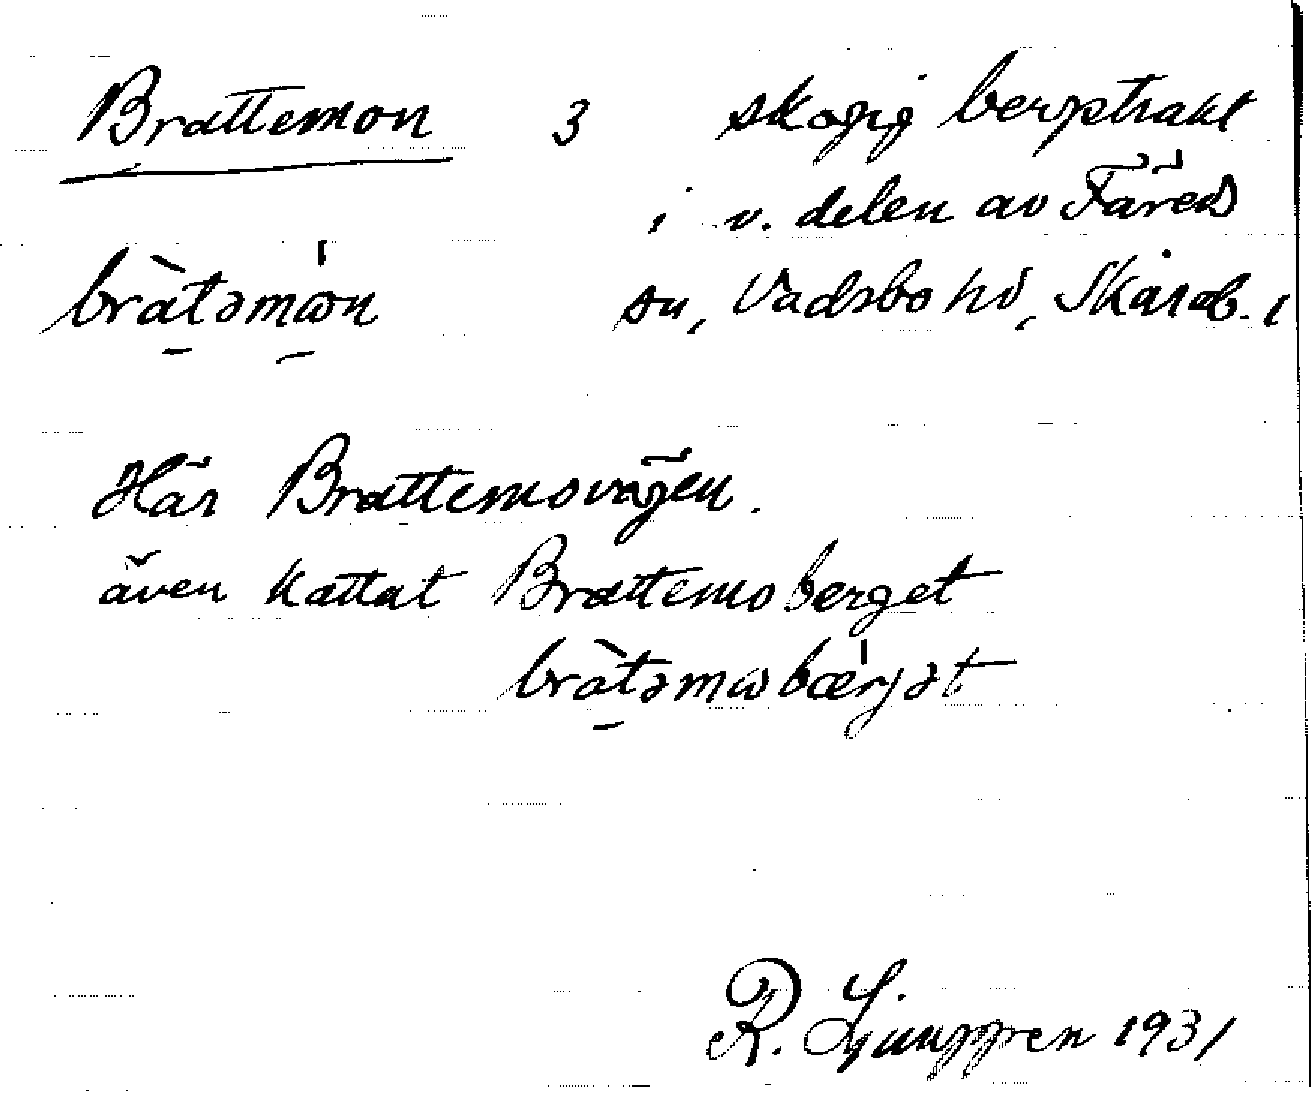 Brattemon 3 skogig bergstrakt
i v. delen av Färeds
bràtəmɷ́n sn, Vadsbo hd, Skarab. l
Här Brattemovägen.
även kallat Brattemoberget
bràtəmɷbærjət
R. Ljunggren 1931